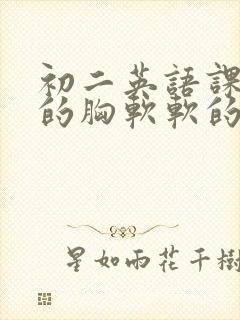 初二英語課
的胸軟軟的
星如雨花千樹